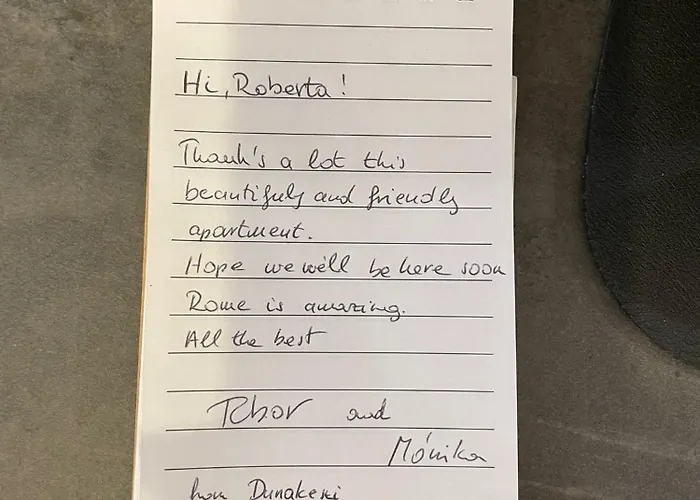 Hi, Roberta!
Thank's a lot this
beautifuly and friendly
apartment.
Hope we we'll be here soon
Rome is amazing.
All the best
Tibor and
Mónika
from Dunakeszi